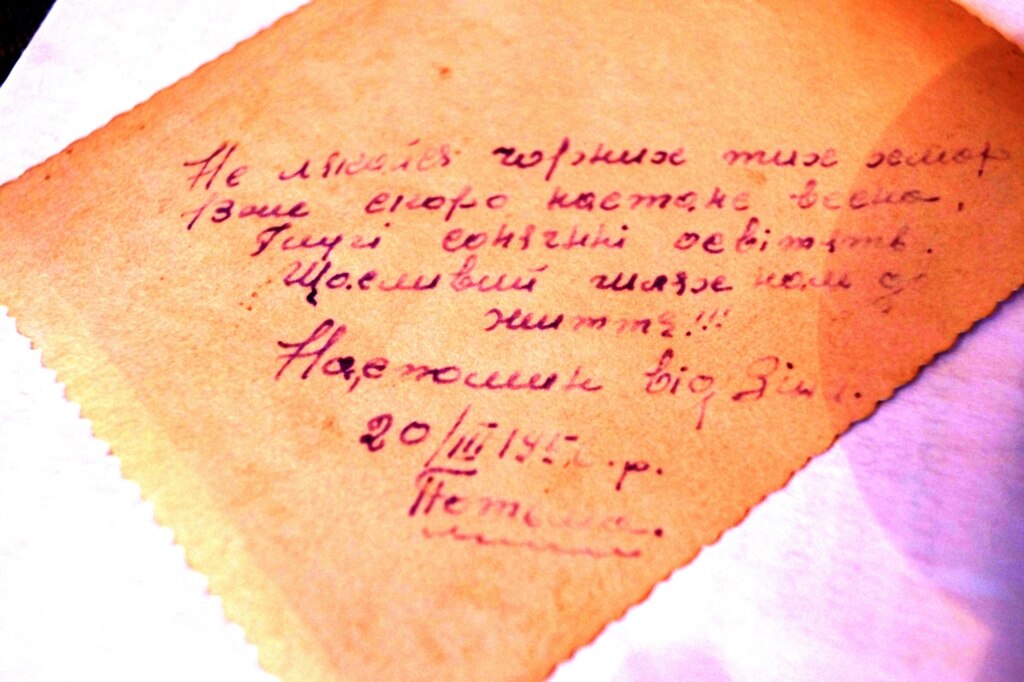 Не лякайся чорних тих хмар
Вже скоро настане весна,
сонячні освітять.
Щасливий шлях нам до
життя!!!
На спомин від
20/III 195 р.
Потьма.